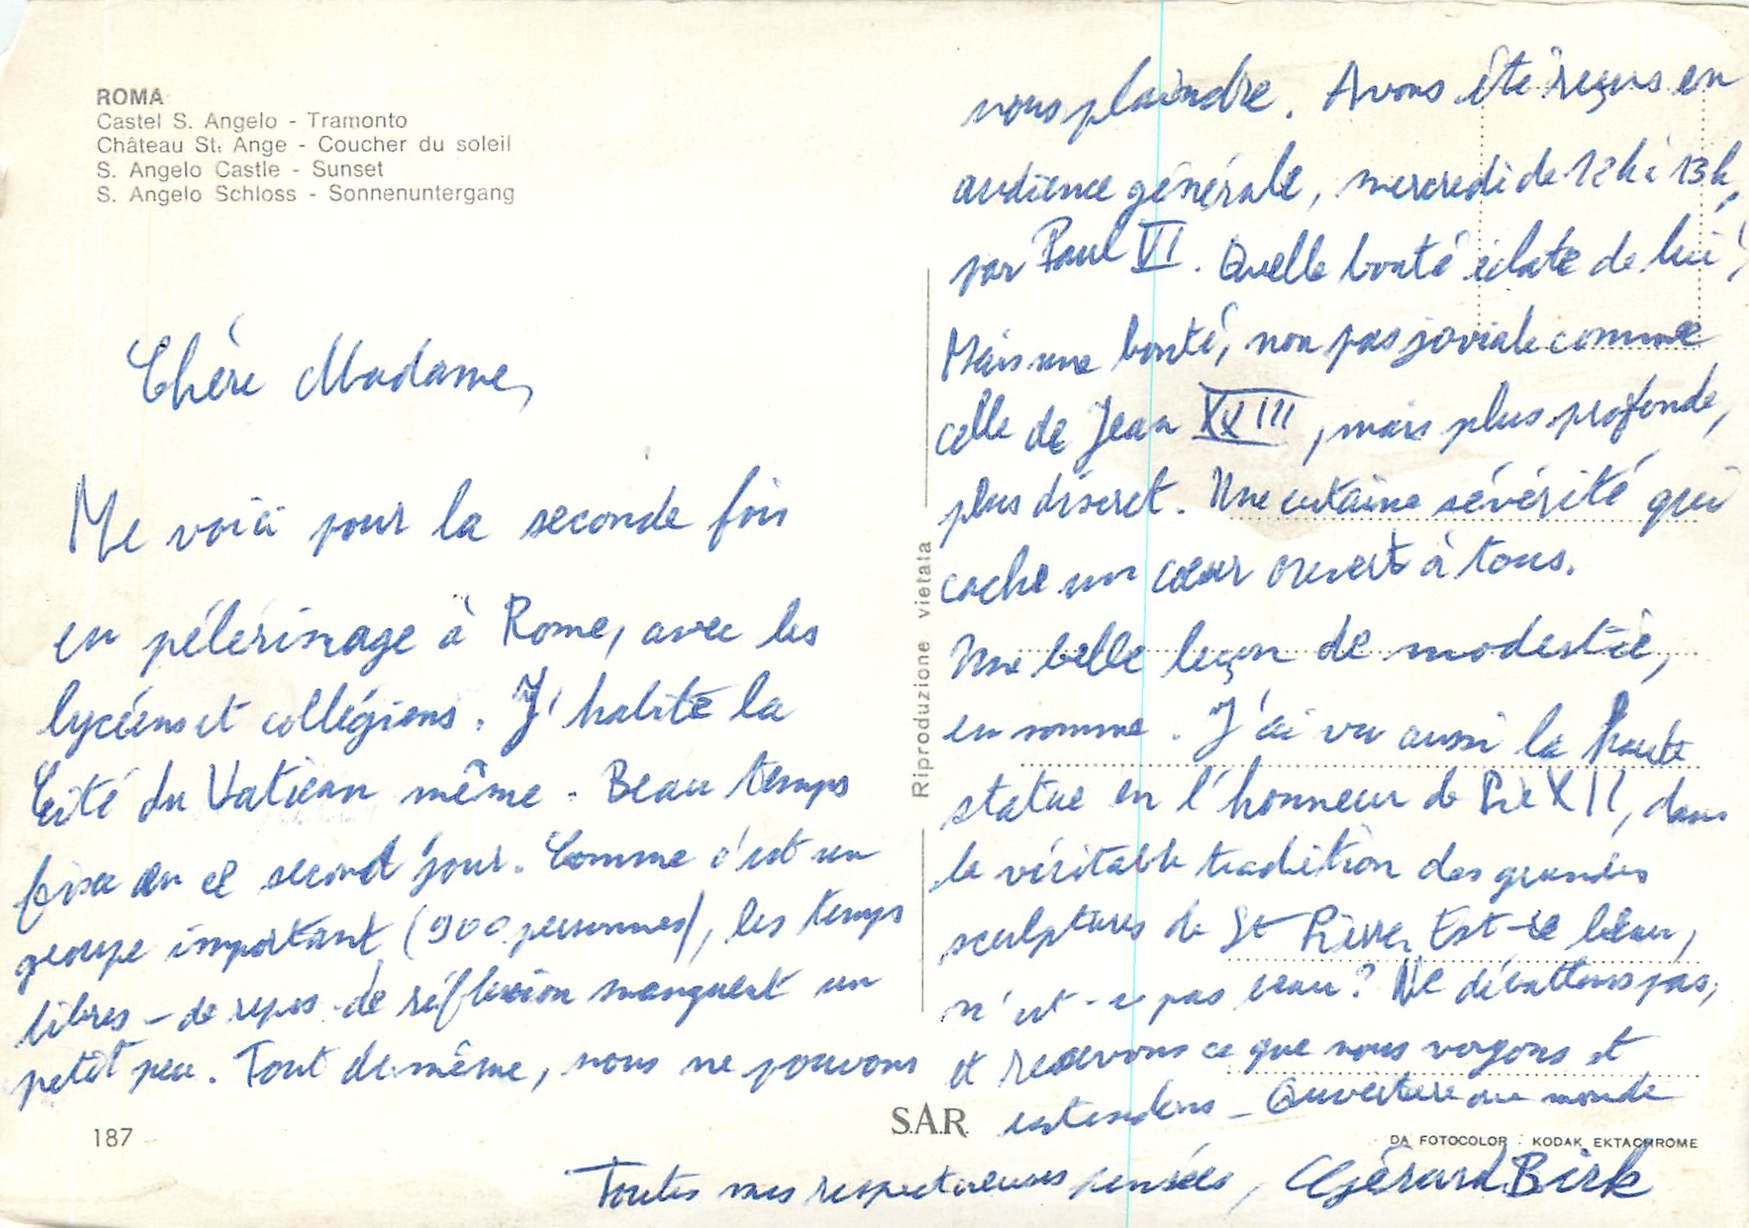 ROMA
Castel S. Angelo - Tramonto
Château St. Ange - Coucher du soleil
S. Angelo Castle - Sunset
S. Angelo Schloss - Sonnenuntergang
Chère Madame,
Me voici pour la seconde fois
en pélerinage à Rome, avec les
lycéens et collégiens. J'habite la
Cité du Vatican même. Beau temps
en ce second jour. Comme c'est un
groupe important (900 personnes), les temps
libres - de repos - de réflexion manquent un
petit peu. Tout de même, nous ne pouvons
187
Riproduzione vietata
S.A.R.
nous plaindre. Avons été reçus en
audience générale, mercredi de 12h à 13h,
par Paul VI. Quelle bonté éclate de lui !
Mais une bonté, non pas joviale comme
celle de Jean XXIII, mais plus profonde,
plus discret. Une certaine sévérité qui
cache un cœur ouvert à tous.
Une belle leçon de modestie,
en somme. J'ai vu aussi la haute
statue en l'honneur de Pie XII, dans
la véritable tradition des grandes
sculptures de St Pierre. Est-ce beau,
n'est-ce pas beau ? Ne débattons pas,
et recevons ce que nous voyons et
entendons - Ouverture au monde
DA FOTOCOLOR - KODAK EKTACHROME
Toutes mes respectueuses pensées, Gérard Birk